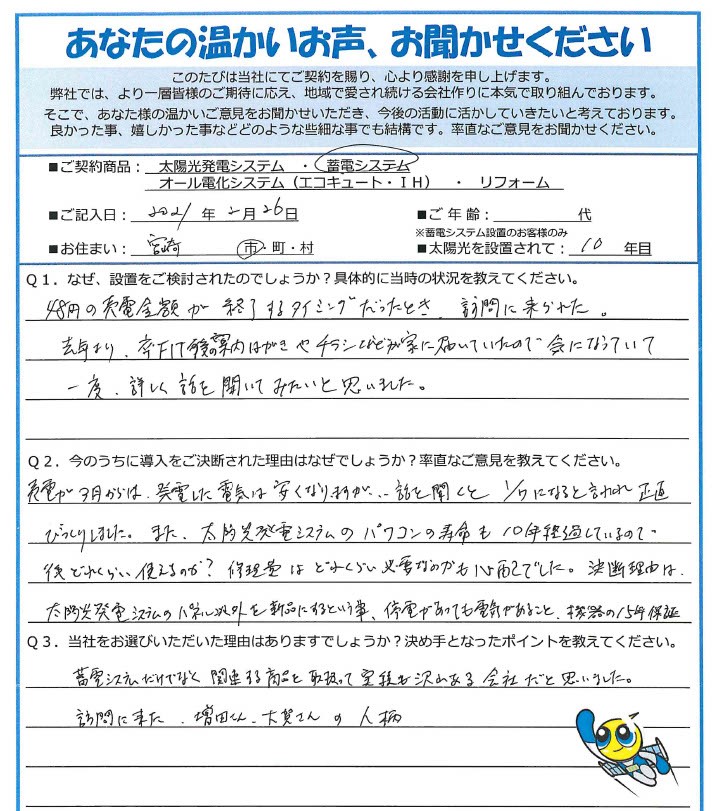 あなたの温かいお声、お聞かせください
このたびは当社にてご契約を賜り、心より感謝を申し上げます。
弊社では、より一層皆様のご期待に応え、地域で愛され続ける会社作りに本気で取り組んでおります。
そこで、あなた様の温かいご意見をお聞かせいただき、今後の活動に活かしていきたいと考えております。
良かった事、嬉しかった事などどのような些細な事でも結構です。率直なご意見をお聞かせください。
■ご契約商品： 太陽光発電システム ・ 蓄電システム
オール電化システム（エコキュート・ＩＨ） ・ リフォーム
■ご記入日： 2021 年 2月 26日 ■ご年齢： 代
※蓄電システム設置のお客様のみ
■お住まい： 宮崎 市・町・村 ■太陽光を設置されて： 10 年目
Ｑ１．なぜ、設置をご検討されたのでしょうか？具体的に当時の状況を教えてください。
48円の売電金額が終了するタイミングだったとき、訪問に来られた。
去年より、卒FIT 案内はがきやチラシなどが家に届いていたので気になっていて
一度、詳しく話を聞いてみたいと思いました。
Ｑ２．今のうちに導入をご決断された理由はなぜでしょうか？率直なご意見を教えてください。
売電が3月からは、発電した電気は安くなりますが… 話を聞くと 1/7になると言われ正直
びっくりしました。また、太陽光発電システムのパワコンの寿命も10年経過しているので
後どれくらい使えるのか？修理費はどれくらい必要なのかも心配でした。決断理由は、
太陽光発電システムのパネル以外を新品にするという事、停電があっても電気があること、機器の15年保証
Ｑ３．当社をお選びいただいた理由はありますでしょうか？決め手となったポイントを教えてください。
蓄電システムだけでなく関連する商品を取扱って実績も沢山ある会社だと思いました。
訪問に来た、増田くん、大賀さんの人柄